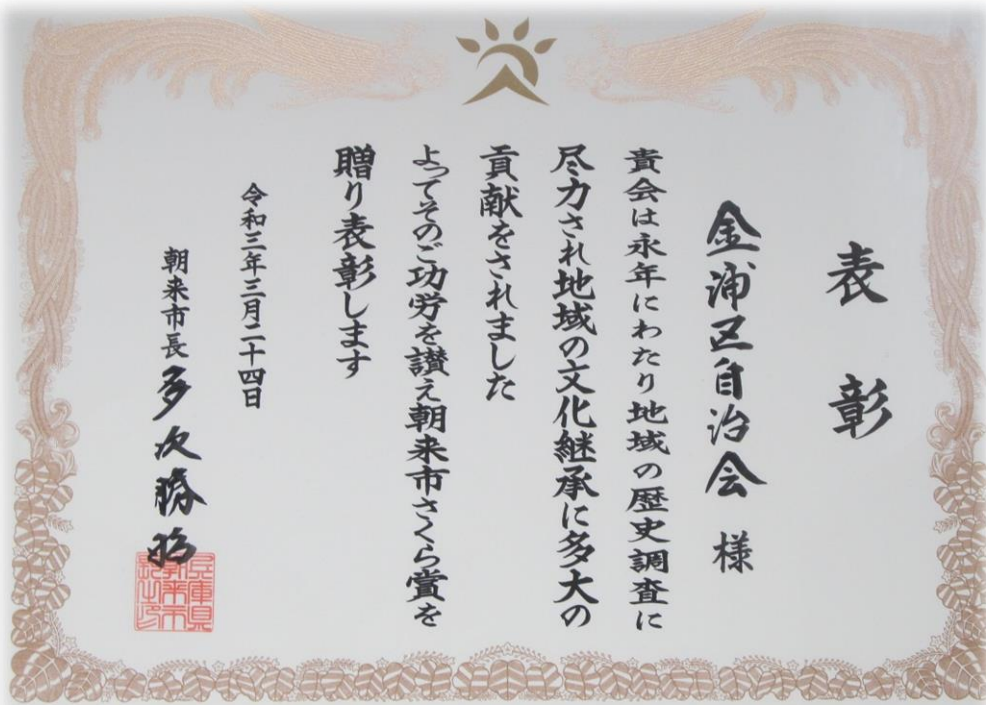 表彰
金浦区自治会 様
貴会は永年にわたり地域の歴史調査に
尽力され地域の文化継承に多大の
貢献をされました
よってそのご功労を讃え朝来市さくら賞を
贈り表彰します
令和三年三月二十四日
朝来市長 多次勝昭
兵庫県
朝来市